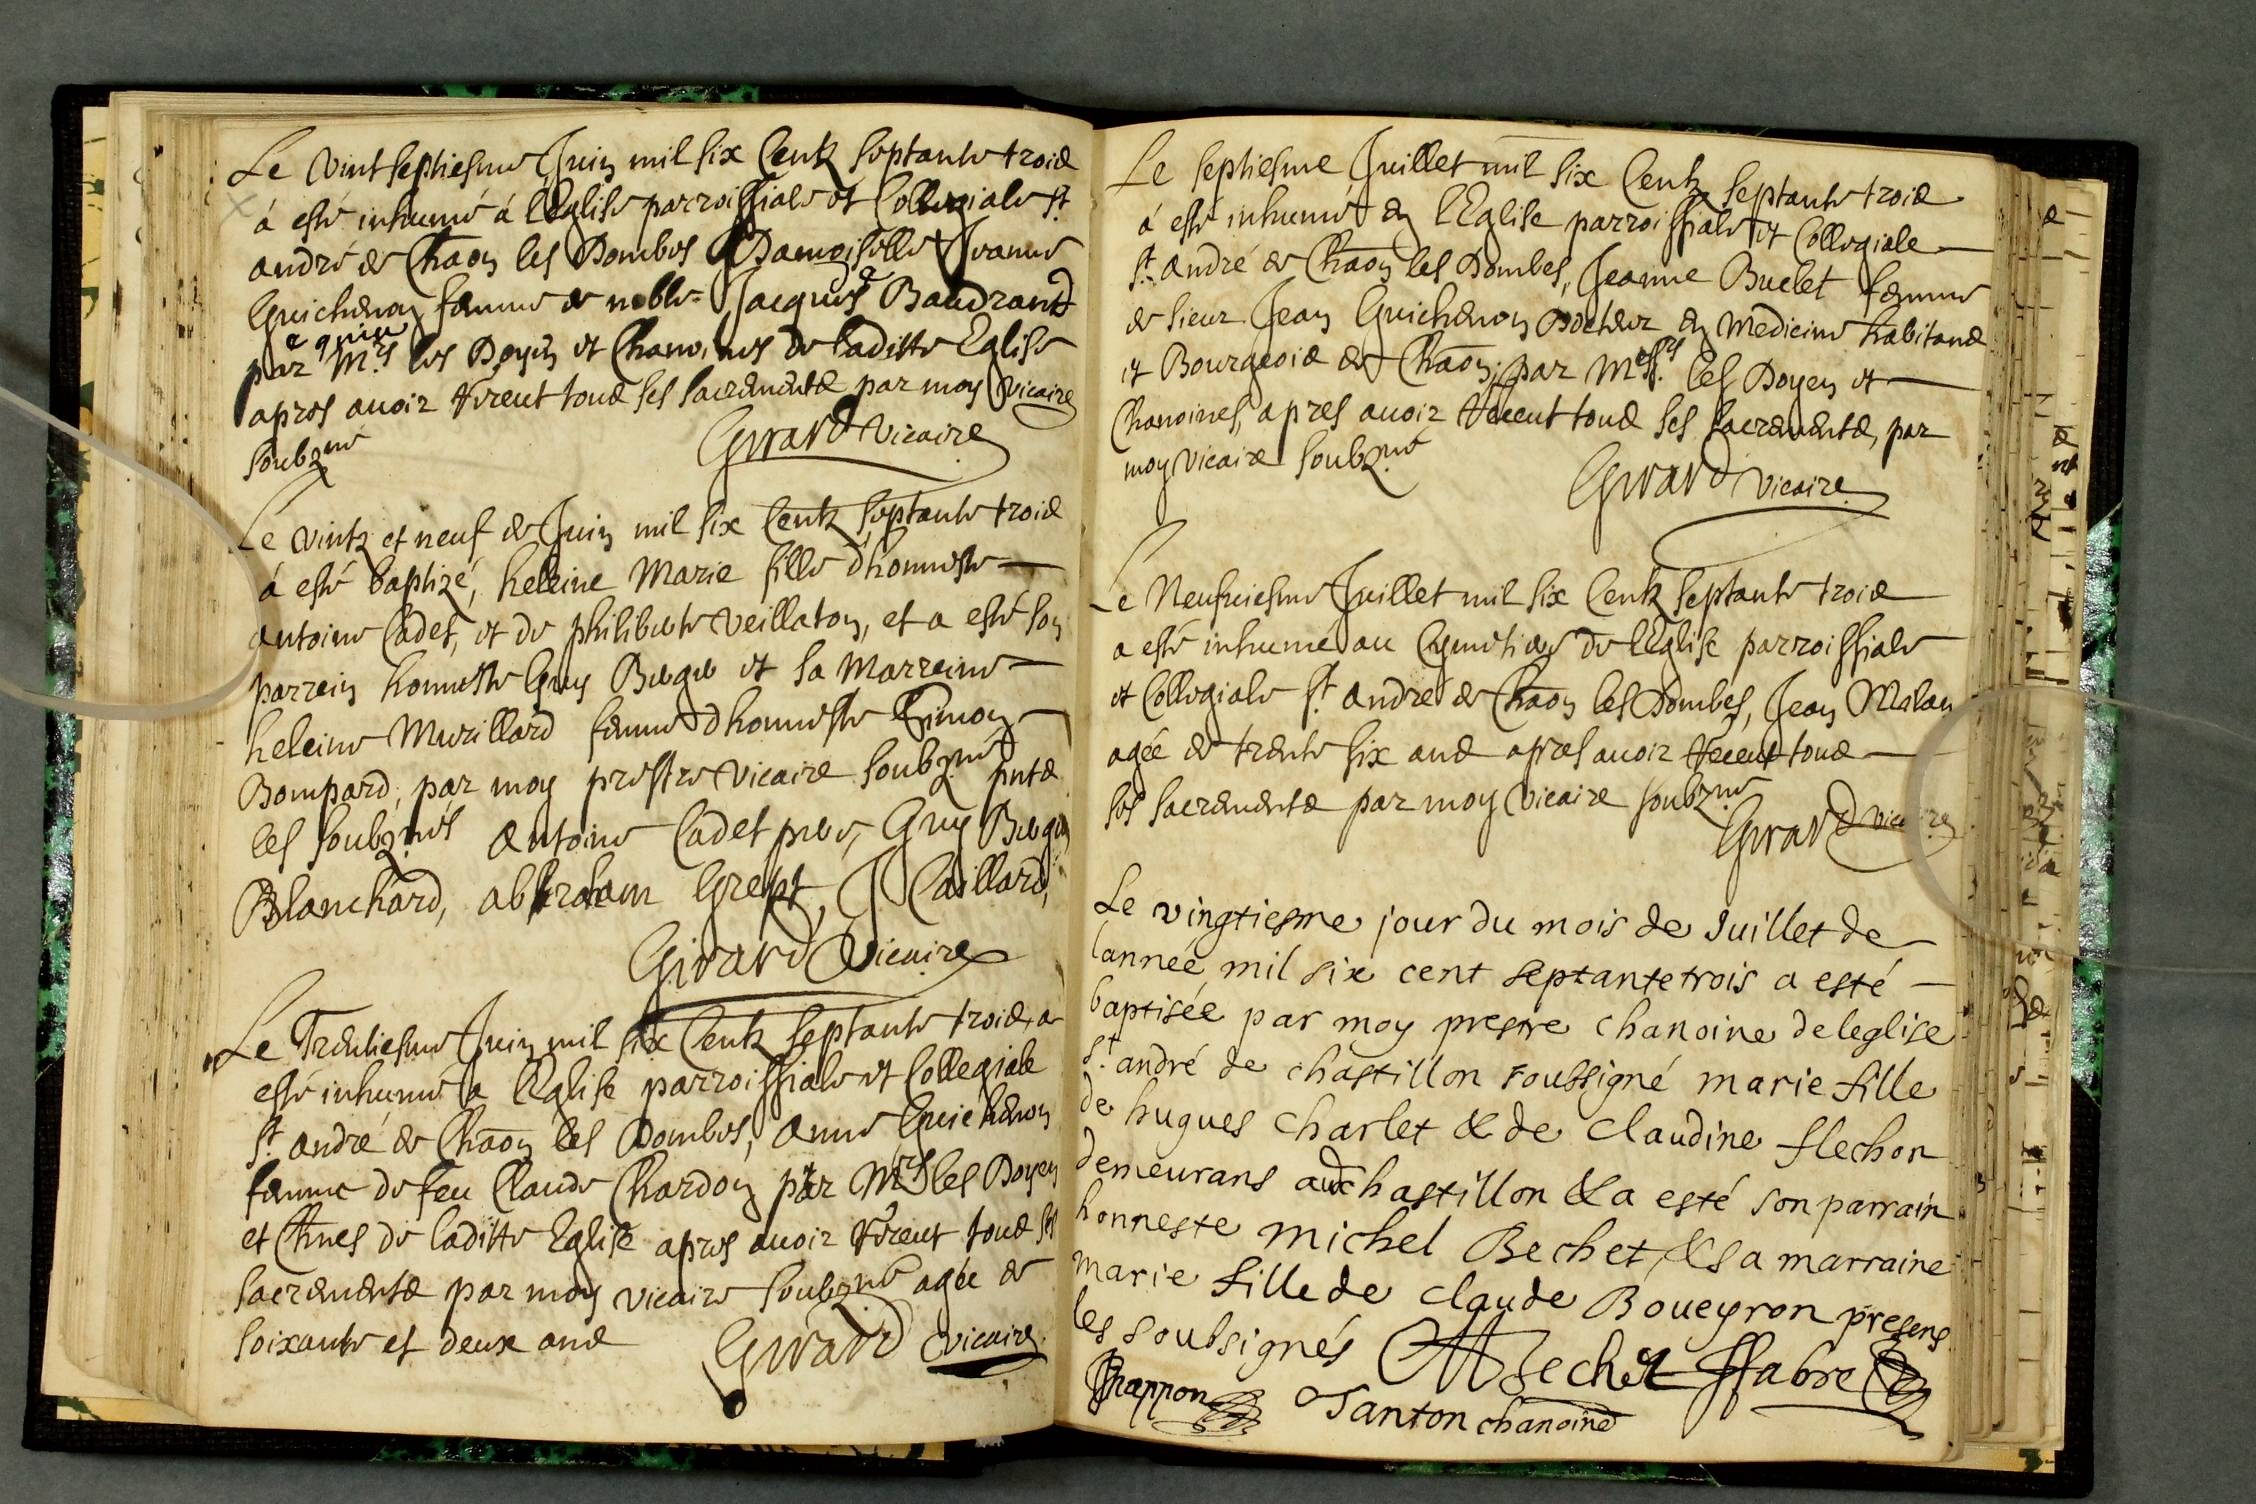 Le vint septiesme Juin mil six Centz septante trois
á esté inhumé á l'Eglise parroissiale et Collegiale St
andré de Chaon les Dombes Damoiselle Jeanne
Guichenon femme de noble Jacques Baudrand
par Mrs les Doyen et Chanoines de laditte Eglise
apres auoir receut tous ses sacrements par moy vicaire
soubzné
Girard vicaire
Le vintz et neuf de Juin mil six Centz septante trois
á esté baptizé, heleine Marie fille d'honneste
antoine Cadet, et de philiberte veillaton, et a esté son
parrein honneste Guy Berger et sa Marreine
heleine Murillard femme d'honneste Simon
Bompard, par moy prestre vicaire soubzné pnts
les soubznés Antoine Cadet pere, Guy Berger
Blanchard, abbraham Grept, J Caillard,
Girard Vicaire
Le Trentiesme Juin mil six Centz septante trois, a
esté inhumé a l'Eglise parroissiale et Collegiale
St andré de Chaon les Dombes, Anne Guichenon
femme de feu Claude Chardon par Mrs les Doyen
et Chnes de laditte Eglise apres auoir receut tous ses
sacrements par moy vicaire soubzné agée de
soixante et deux ans
Girard vicaire
Le septiesme Juillet mil six Centz septante trois
á esté inhumé en l'Eglise parroissiale et Collegiale
St andré de Chaon les Dombes, Jeanne Buclet femme
de sieur Jean Guichenon Docteur en Medicine habitans
et Bourgeois de Chaon, par Messrs les Doyen et
Chanoines, apres auoir receut tous ses sacrements, par
moy vicaire soubzné
Girard vicaire
Le Neufuiesme Juillet mil six Centz septante trois
a esté inhumé au Cymetiere de l'Eglise parroissiale
et Collegiale St andré de Chaon les Dombes, Jean Milan
agée de trente six ans apres auoir receut tous
ses sacrements par moy vicaire soubzné
Girard vicaire
Le vingtiesme jour du mois de Juillet de
lannée mil six cent septante trois a esté
baptisée par moy prestre chanoine de leglise
St andré de chastillon soubsigné marie fille
de hugues charlet & de claudine flechon
demeurans audt chastillon & a esté son parrain
honneste michel Bechet, & sa marraine
marie fille de claude Boueyron presens
les soubsignés M Bechet ffabre
Chappon Tanton chanoine